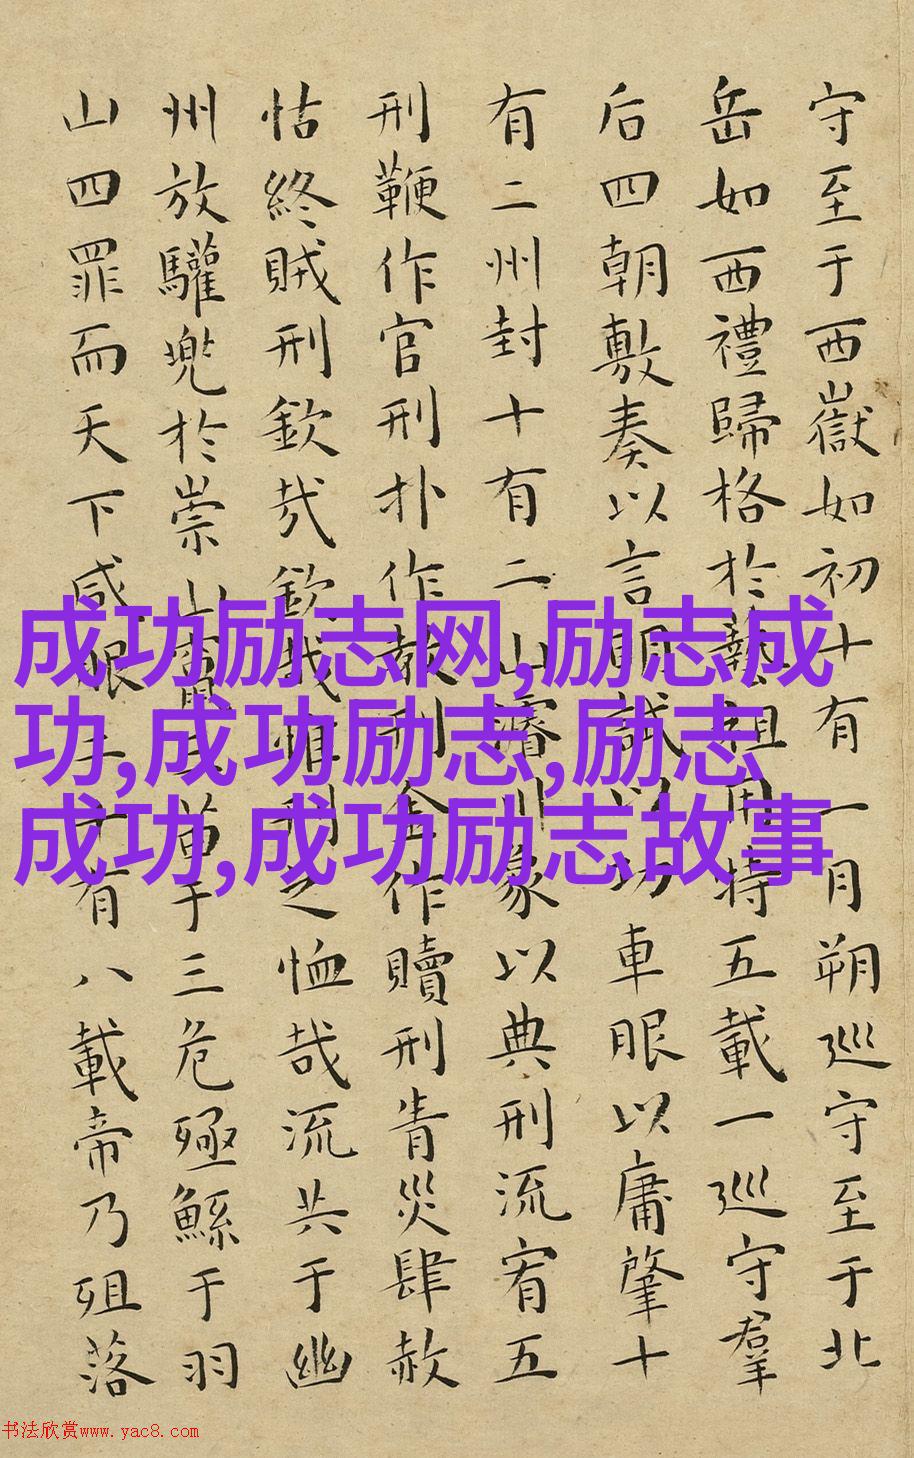 守至于西嶽如初十有一月朔巡守至于北
岳如西禮歸格於藝祖用特五載一巡守羣
后四朝敷奏以言明試以功車服以庸肇十
有二州封十有二山濬川象以典刑流宥五
刑鞭作官刑扑作教刑金作贖刑眚災肆赦
怙終賊刑欽哉欽哉惟刑之恤哉流共于幽
州放驩兜於崇山于三危殛鯀于羽
山四罪而天下咸服二十有八載帝乃殂落
成功励志网,励志成
功,成功励志,励志
成功,成功励志故事
书法欣赏www.yac8.com